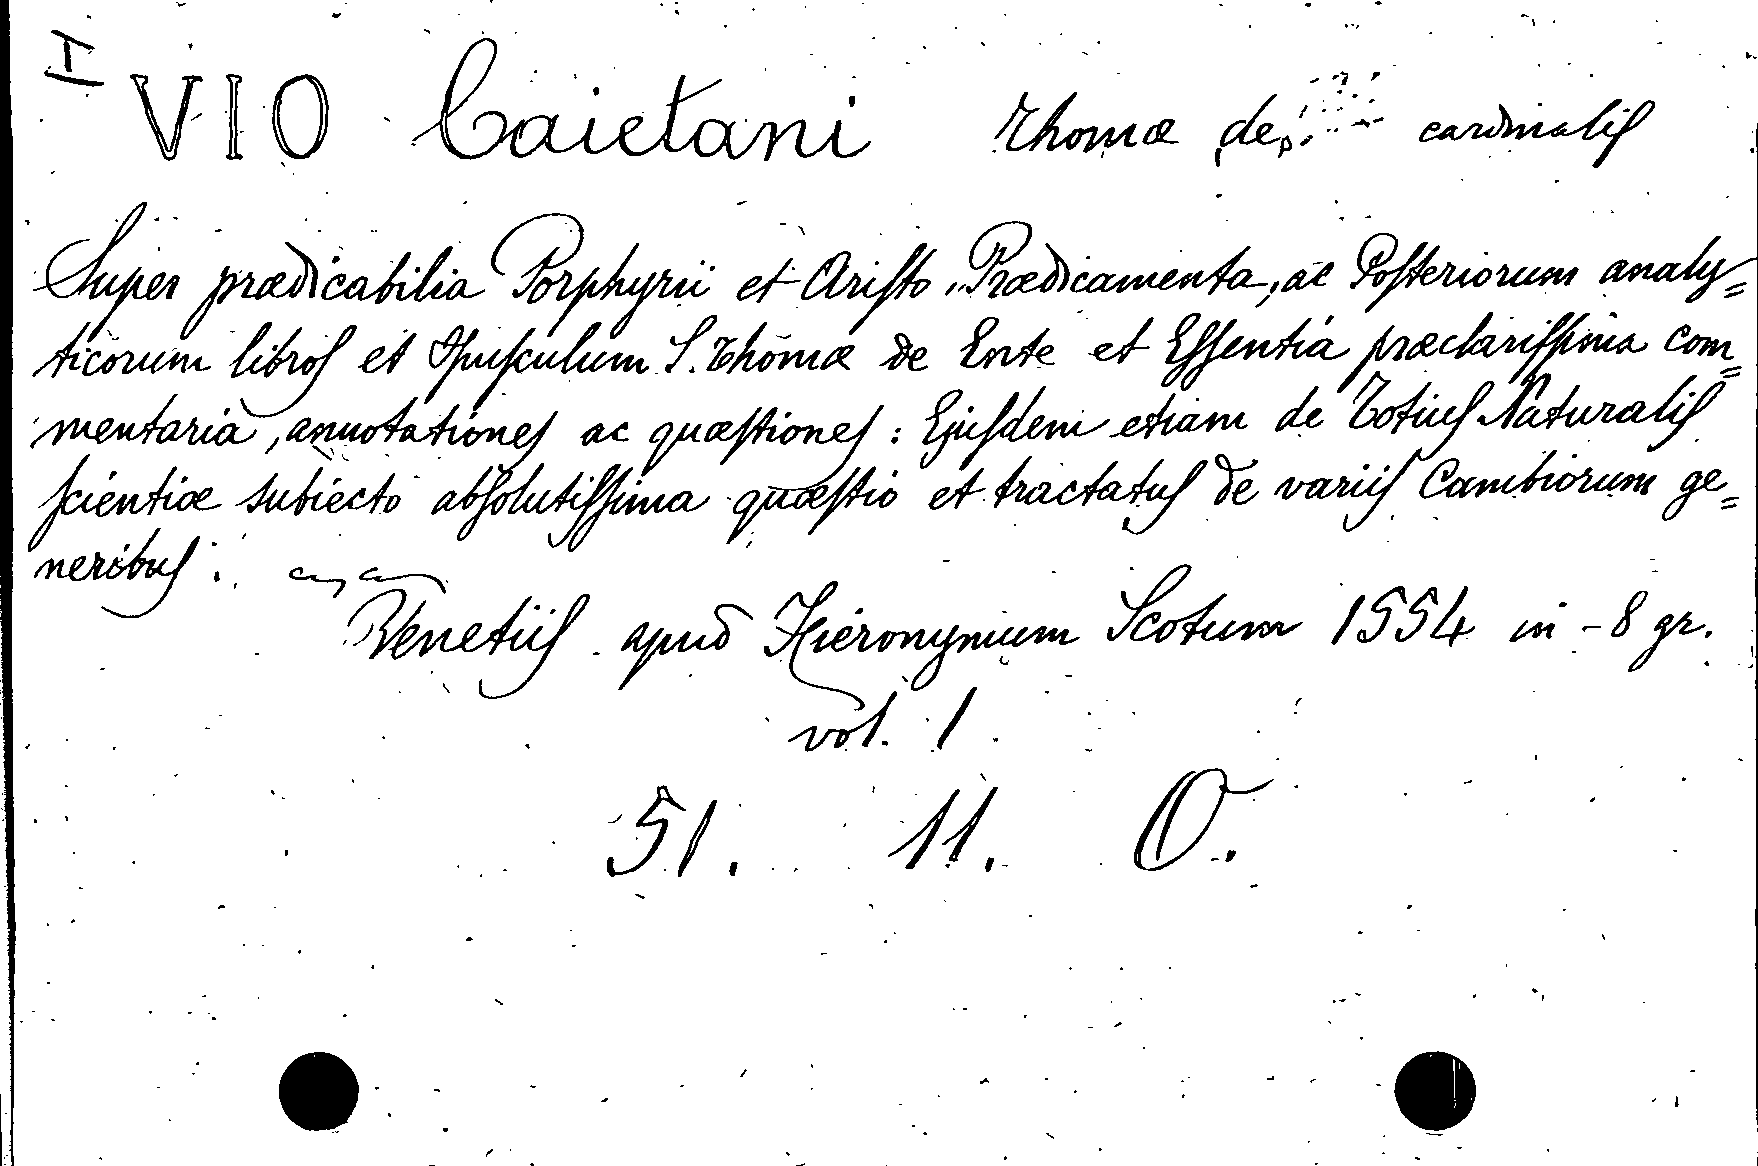 I
VIO Caietani Thomæ de cardinalis
Super prædicabilia Porphyrii et Aristo. Prædicamenta, ac Posteriorum analy=
ticorum libros et Opusculum S. Thomæ de Ente et Essentia præclarissima com=
mentaria, annotationes ac quæstiones: Ejusdem etiam de Totius Naturalis
scientiæ subiecto absolutissima quæstio et tractatus de variis Cambiorum ge=
neribus:
Venetiis apud Hieronymum Scotum 1554 in-8 gr.
vol. 1
51. 11. O.